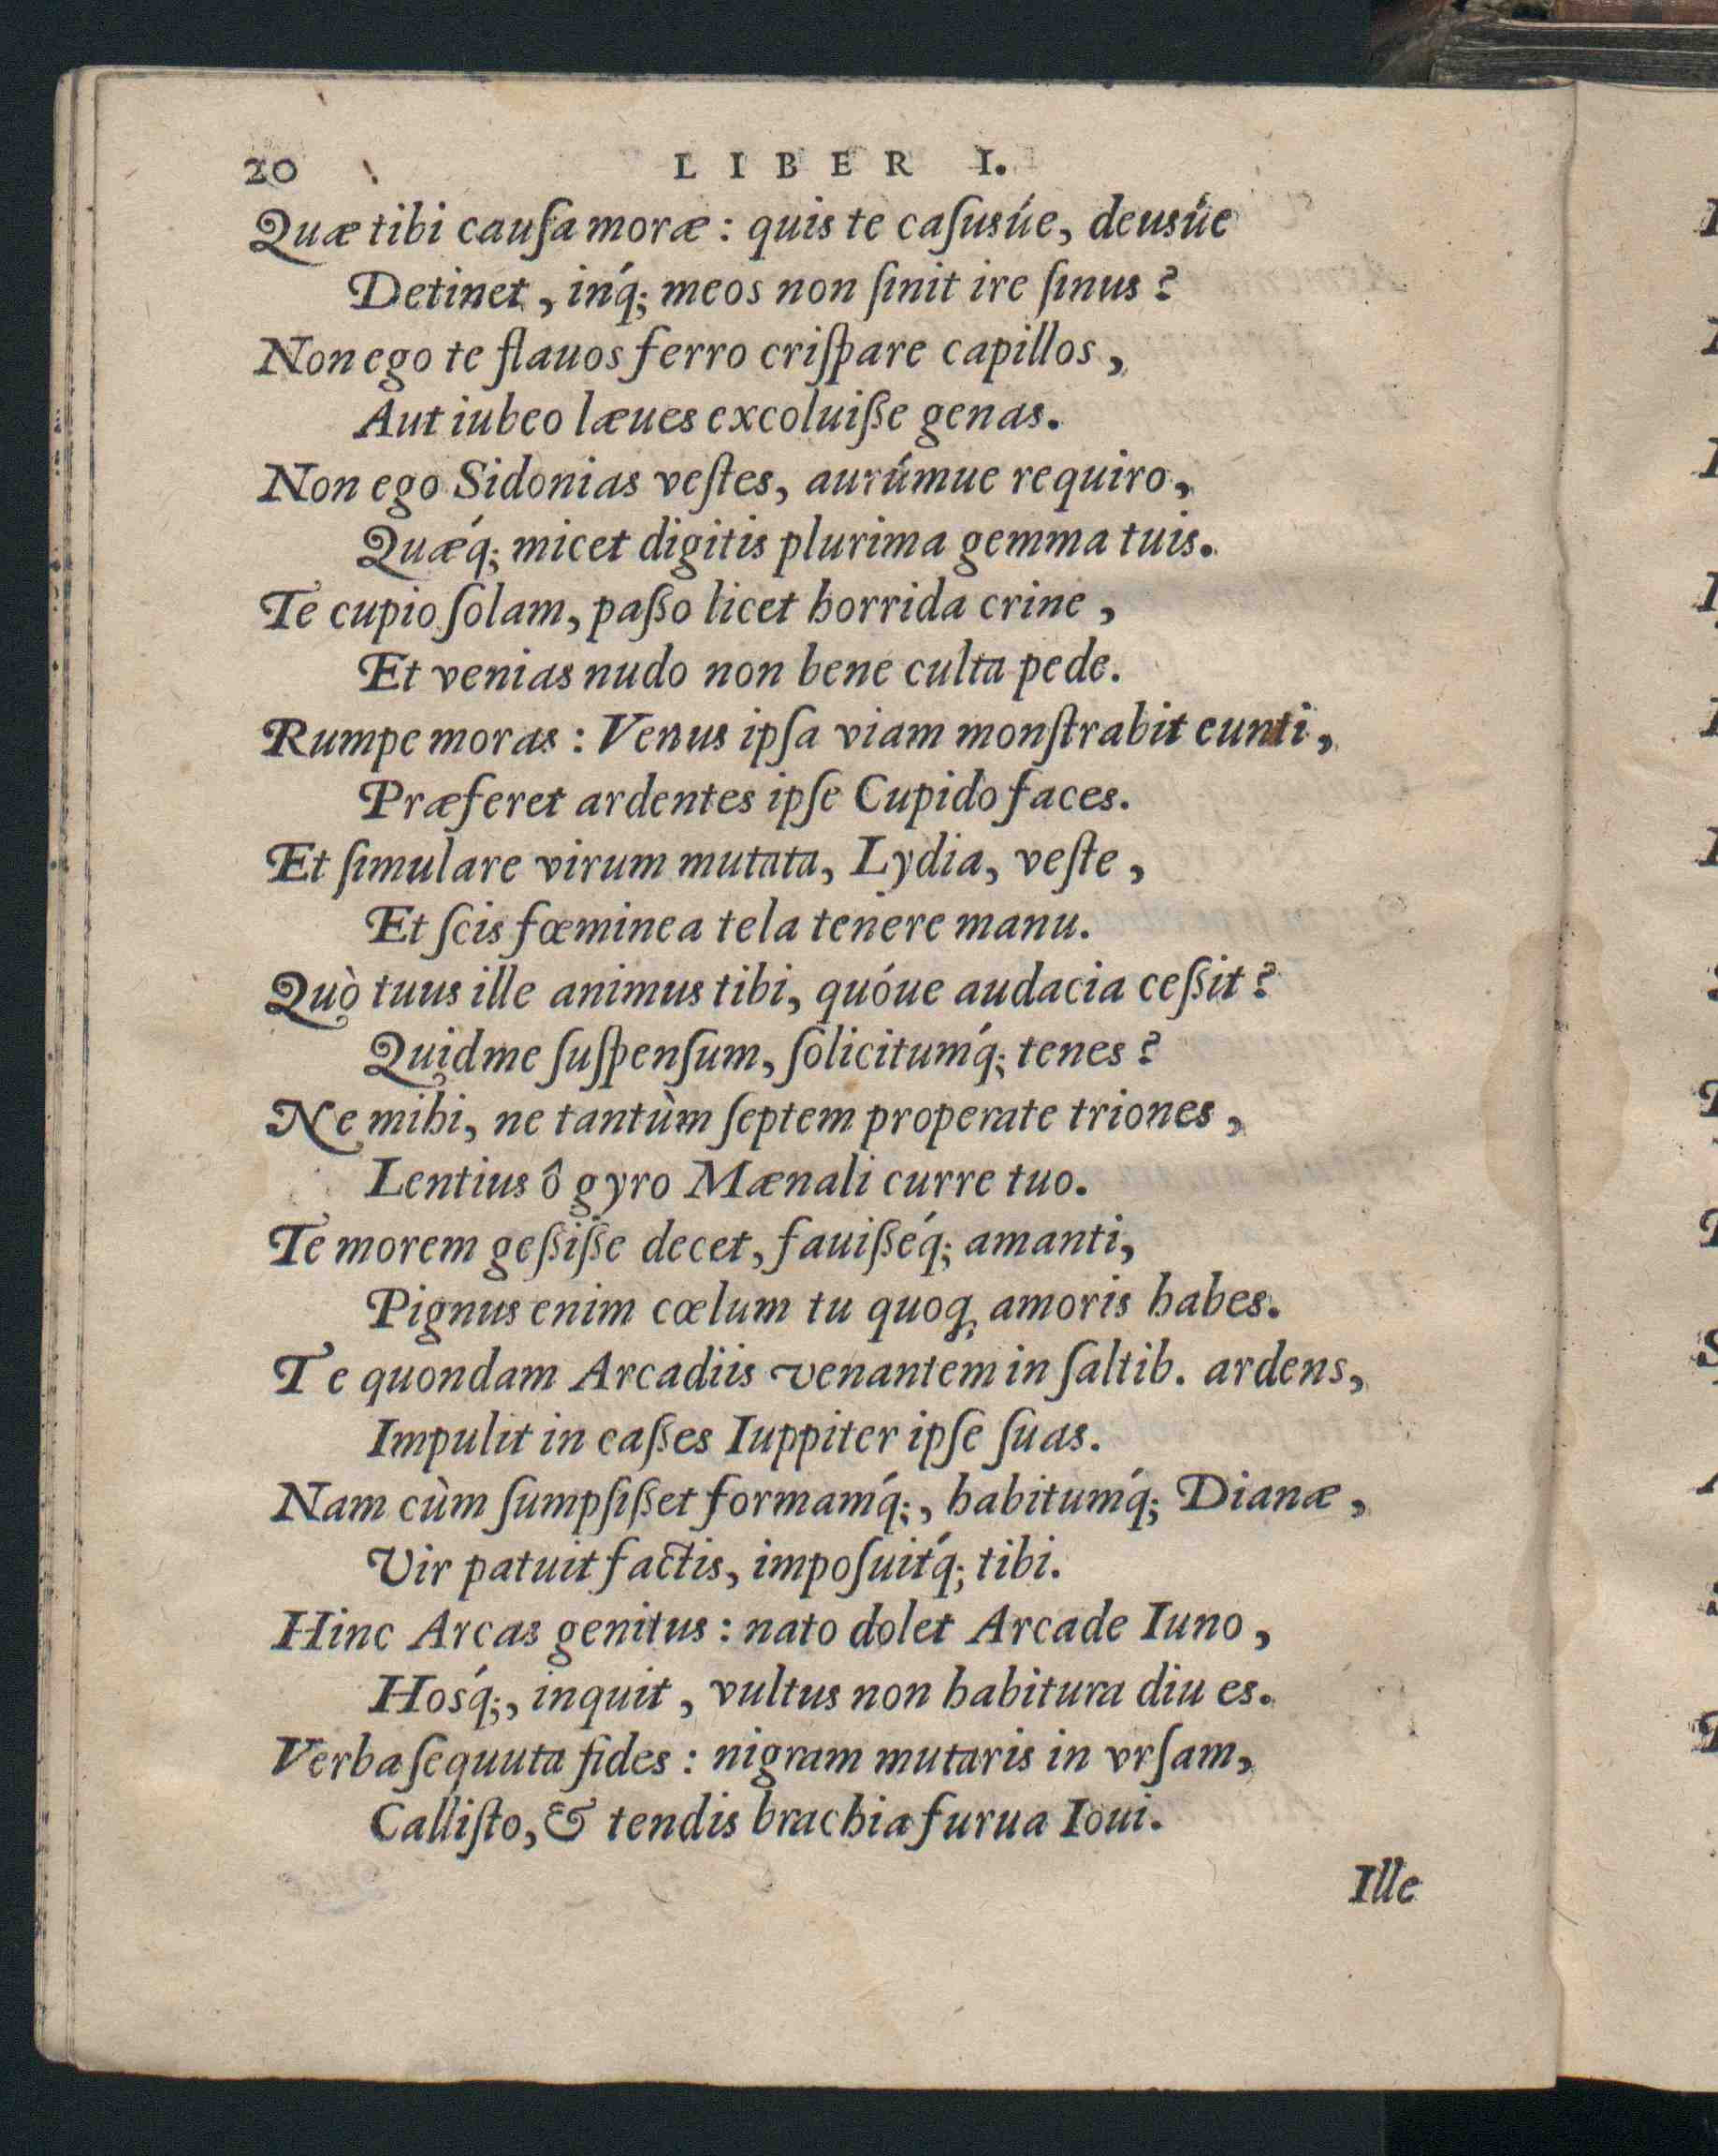 20 LIBER I.
Quæ tibi cauſa moræ: quis te caſusúe, deusúe
Detinet, inq́; meos non ſinit ire ſinus?
Non ego te flauos ferro criſpare capillos,
Aut iubeo læues excoluiſſe genas.
Non ego Sidonias veſtes, aurúmue requiro,
Quæq́; micet digitis plurima gemma tuis.
Te cupio ſolam, paſſo licet horrida crine,
Et venias nudo non bene culta pede.
Rumpe moras: Venus ipſa viam monſtrabit eunti,
Præferet ardentes ipſe Cupido faces.
Et ſimulare virum mutata, Lydia, veſte,
Et ſcis fœminea tela tenere manu.
Quò tuus ille animus tibi, quóue audacia ceſſit?
Quid me ſuſpenſum, ſolicitumq́; tenes?
Ne mihi, ne tantùm ſeptem properate triones,
Lentius ô gyro Mænali curre tuo.
Te morem geſſiſſe decet, fauiſſeq́; amanti,
Pignus enim cœlum tu quoq, amoris habes.
Te quondam Arcadiis venantem in ſaltib. ardens,
Impulit in caſſes Iuppiter ipſe ſuas.
Nam cùm ſumpſiſſet formamq́;, habitumq́; Dianæ,
Vir patuit factis, impoſuitq́; tibi.
Hinc Arcas genitus: nato dolet Arcade Iuno,
Hosq́;, inquit, vultus non habitura diu es.
Verba ſequuta fides: nigram mutaris in vrſam,
Calliſto, & tendis brachia furua Ioui.
Ille